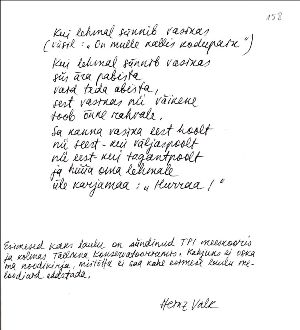 158
Kui lehmal sünnib vasikas
(viisil: "On mulle kallis kodupaik")
Kui lehmal sünnib vasikas
siis ära pabista
vaid teda abista,
sest vasikas nii väikene
toob õnne rahvale.
Sa kanna vasika eest hoolt
nii eest- kui väljaspoolt
nii eest kui tagantpoolt
ja hüüa oma lehmale
üle karjamaa: "Hurraa!"
Esimesed kaks laulu on sündinud TPI meeskooris
ja kolmas Tallinna Konservatooriumis. Kahjuks ei oska
ma noodikirja, mistõttu ei saa kahe esimese laulu me-
loodiaid edastada.
Heinz Valk